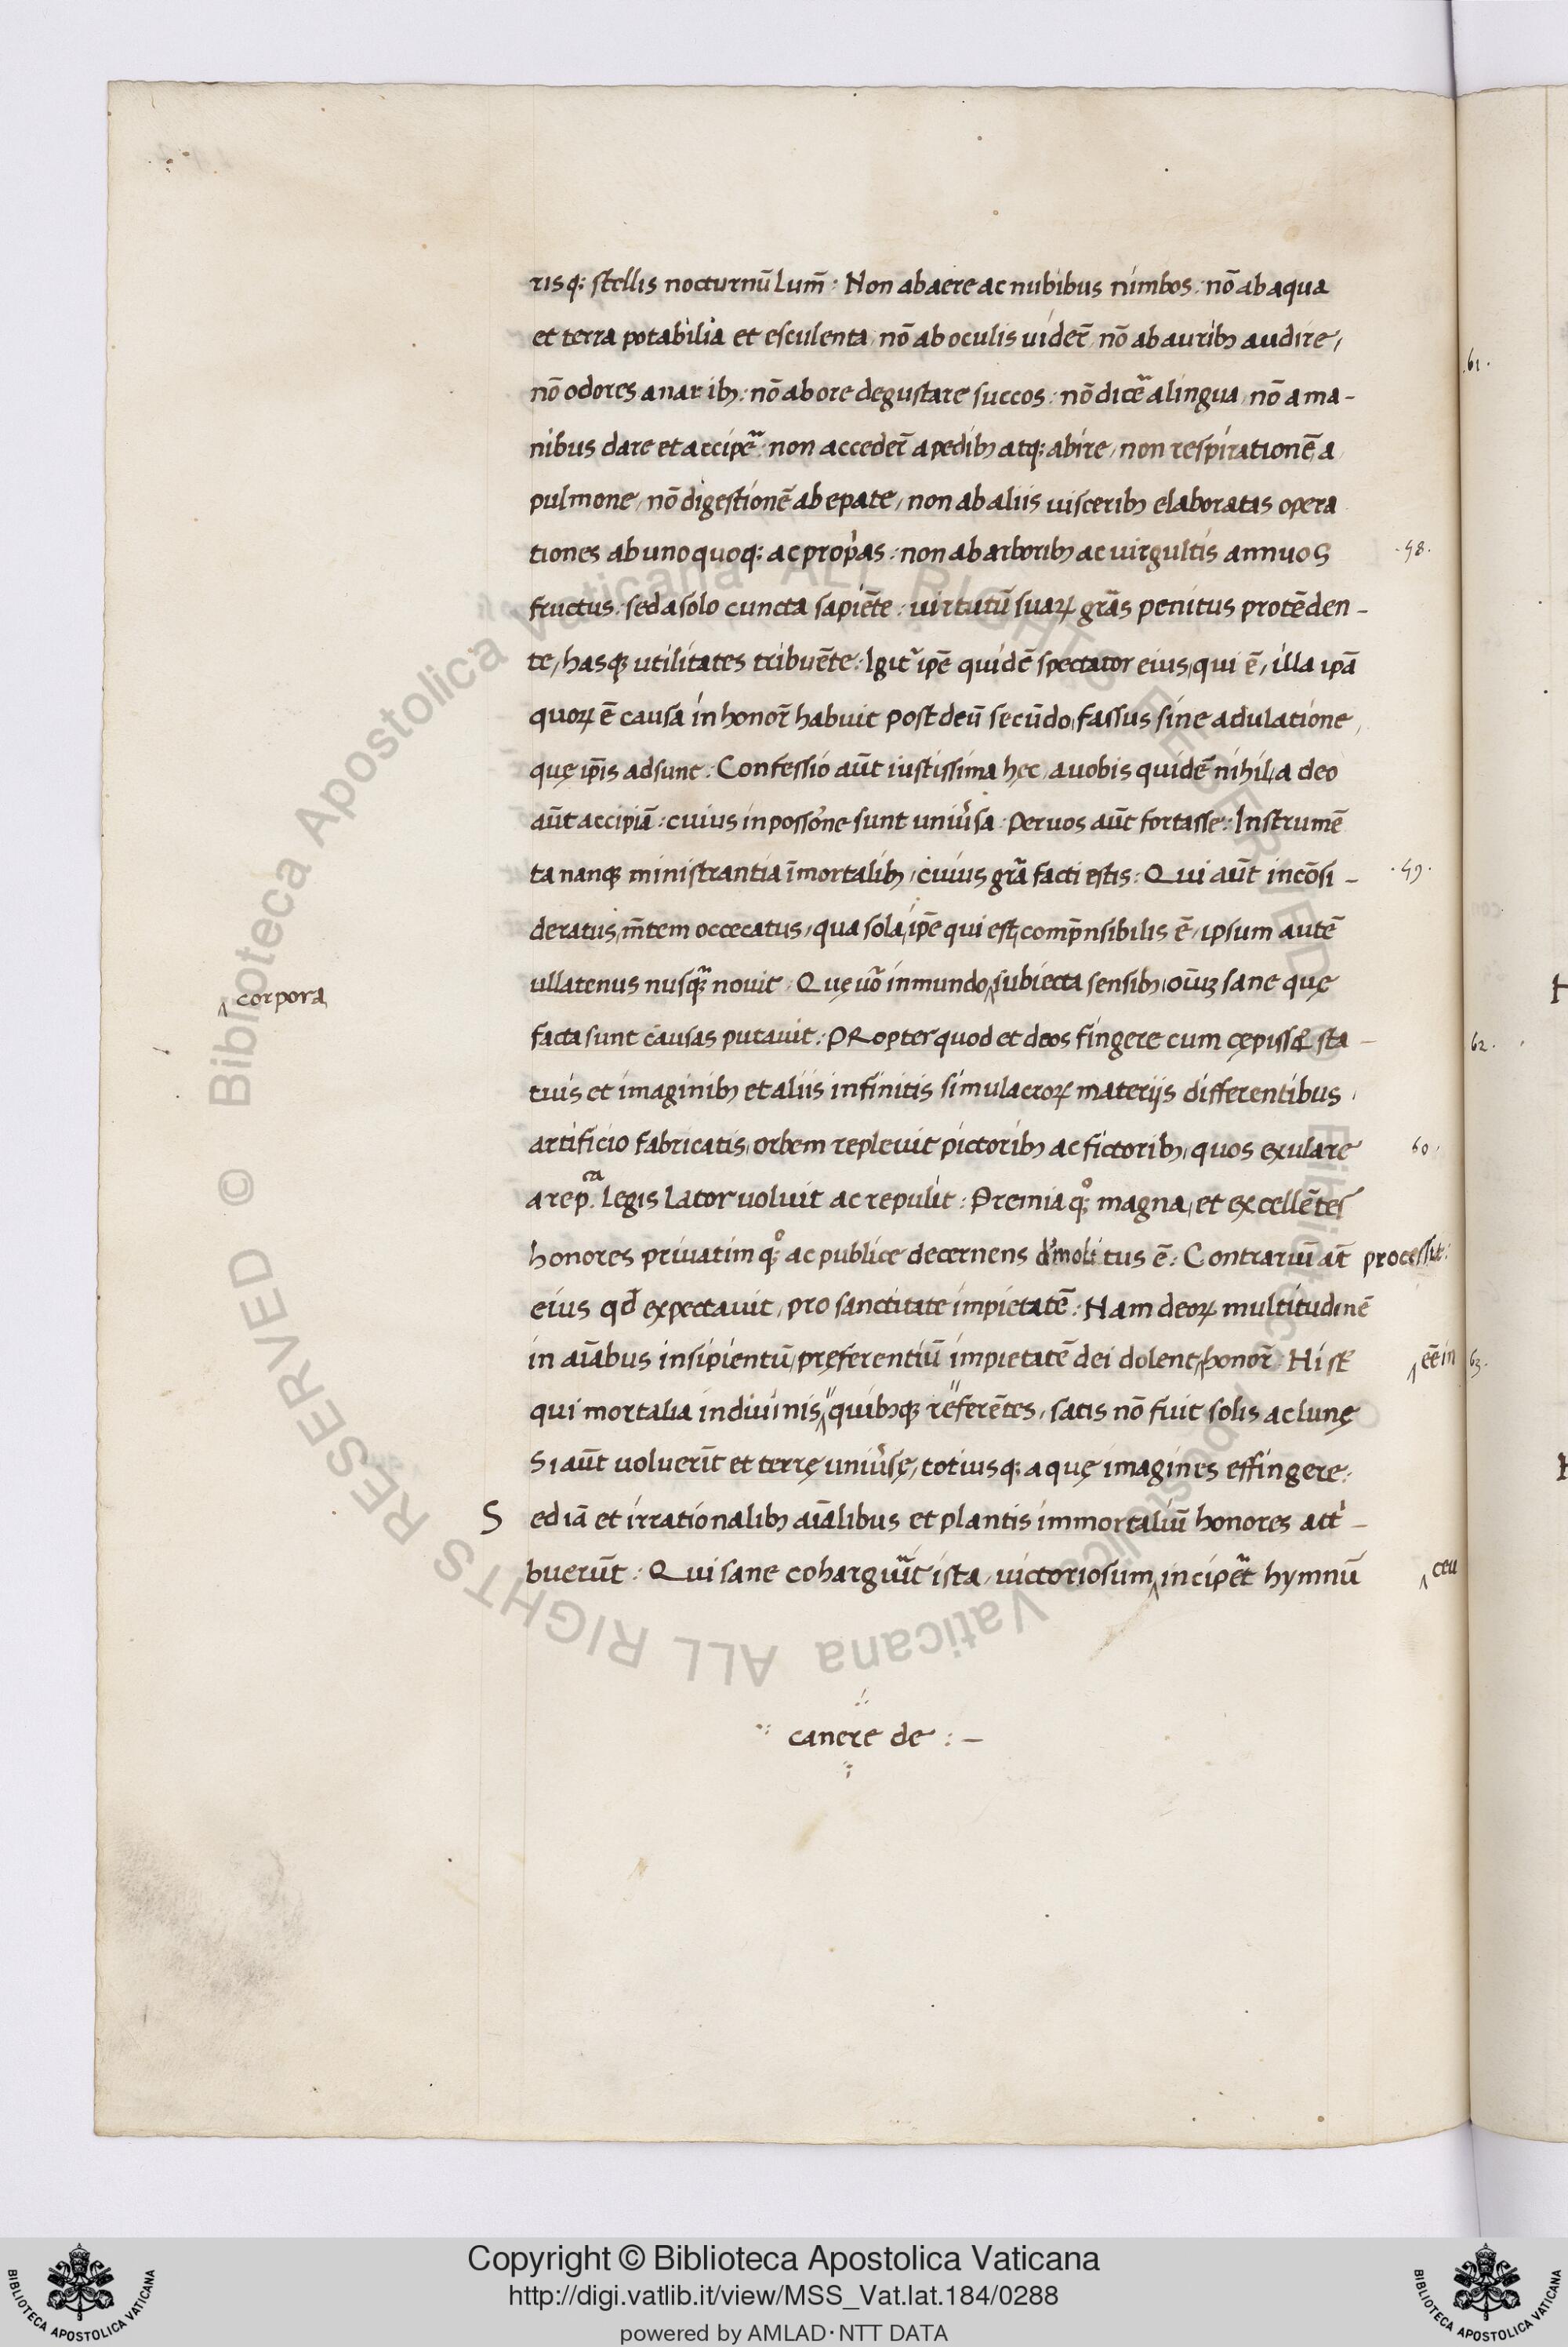 risq: stellis nocturnū lum̄: Non ab aere ac nubibus nimbos: nō ab aqua
et terra potabilia et esculenta, nō ab oculis uider̄, nō ab aurib; audire,
nō odores a narib;: nō ab ore degustare succos: nō dicē a lingua, nō a ma-
nibus dare et accipē: non acceder̄ a pedib; atq: abire, non respirationē a
pulmone, nō digestionē ab epate, non ab aliis uiscerib; elaboratas opera
tiones ab uno quoq: ac prop̄as: non ab arborib; ac uirgultis annuos
·58·
fructus: sed a solo cuncta sapiēte: uirtutū suaꝝ grās penitus protēden-
te, hasq; utilitates tribuēte: Igit̄ ip̄e quidē spectator eius, qui ē, illa ip̄a
quoꝝ ē causa in honor̄ habuit post deū secūdo, fassus sine adulatione,
quę ip̄is adsunt: Confessio aūt iustissima hęc, a uobis quidē nihil, a deo
aūt accipiā: cuius in possōne sunt uniu̓sa. Per uos aūt fortasse: Instrumē
ta nanq; ministrantia īmortalib;, cuius grā facti estis: Qui aūt incōsi-
·59·
deratus, m̄tem occecatus, qua sola, ip̄e qui est, comp̄nsibilis ē, ipsum autē
ullatenus nusq̄ nouit. Quę uo᷎ in mundo ‸ subiecta sensib;, oīuȝ sane quę
‸ corpora
facta sunt causas putauit: PRopter quod et deos fingere cum cępiss& sta-
tuis et imaginib; et aliis infinitis simulacroꝝ materijs differentibus,
artificio fabricatis, orbem repleuit pictorib; ac fictorib;, quos exulare
60·
a rep.ca legis lator uoluit ac repulit: Premia q;o magna, et excellētes
honores priuatim q;o ac publice decernens d̓molitus ē: Contrariū aūt processit:
eius qd̄ expectauit, pro sanctitate impietatē: Nam deoꝝ multitudinē
in aīabus insipientū, pręferentiū impietatē dei dolent ‸ honor̄: Hi st̄
‸ ēē in
qui mortalia in diuinis ‸ quib;q; referētes, satis nō fuit solis ac lunę
Si aūt uoluer̄t et terrę uniu̓sę, totiusq: aquę imagines effingere:
Sed iā et irrationalib; aīalibus et plantis immortaliū honores att̓-
buerūt: Qui sane coharguīt ista, uictoriosum ‸ incipēt hymnū
‸ ceu
canere de : —
61·
62·
63·
Copyright © Biblioteca Apostolica Vaticana
http://digi.vatlib.it/view/MSS_Vat.lat.184/0288
powered by AMLAD·NTT DATA
BIBLIOTECA APOSTOLICA VATICANA
BIBLIOTECA APOSTOLICA VATICANA
© Biblioteca Apostolica Vaticana ALL RIGHTS RESERVED
© Biblioteca Apostolica Vaticana ALL RIGHTS RESERVED